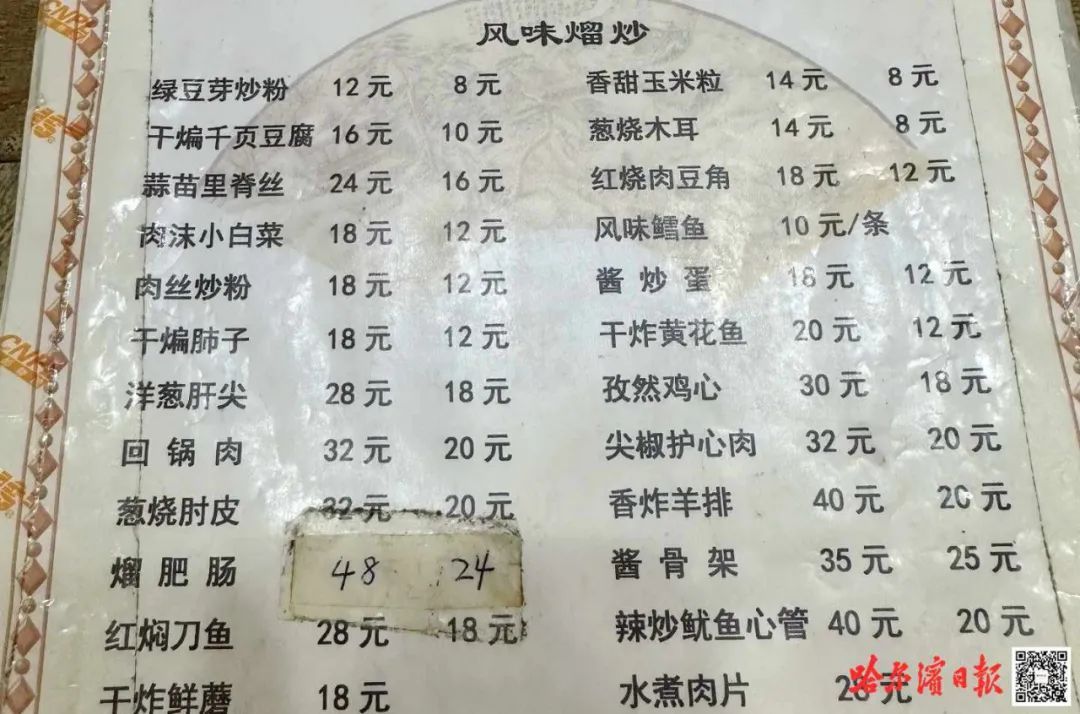 风味熘炒
绿豆芽炒粉 12元 8元
干煸千页豆腐 16元 10元
蒜苗里脊丝 24元 16元
肉沫小白菜 18元 12元
肉丝炒粉 18元 12元
干煸肺子 18元 12元
洋葱肝尖 28元 18元
回锅肉 32元 20元
葱烧肘皮 32元 20元
熘肥肠 48 24
红焖刀鱼 28元 18元
干炸鲜蘑 18元
香甜玉米粒 14元 8元
葱烧木耳 14元 8元
红烧肉豆角 18元 12元
风味鳕鱼 10元/条
酱炒蛋 18元 12元
干炸黄花鱼 20元 12元
孜然鸡心 30元 18元
尖椒护心肉 32元 20元
香炸羊排 40元 20元
酱骨架 35元 25元
辣炒鱿鱼心管 40元 20元
水煮肉片 元
哈尔滨日报